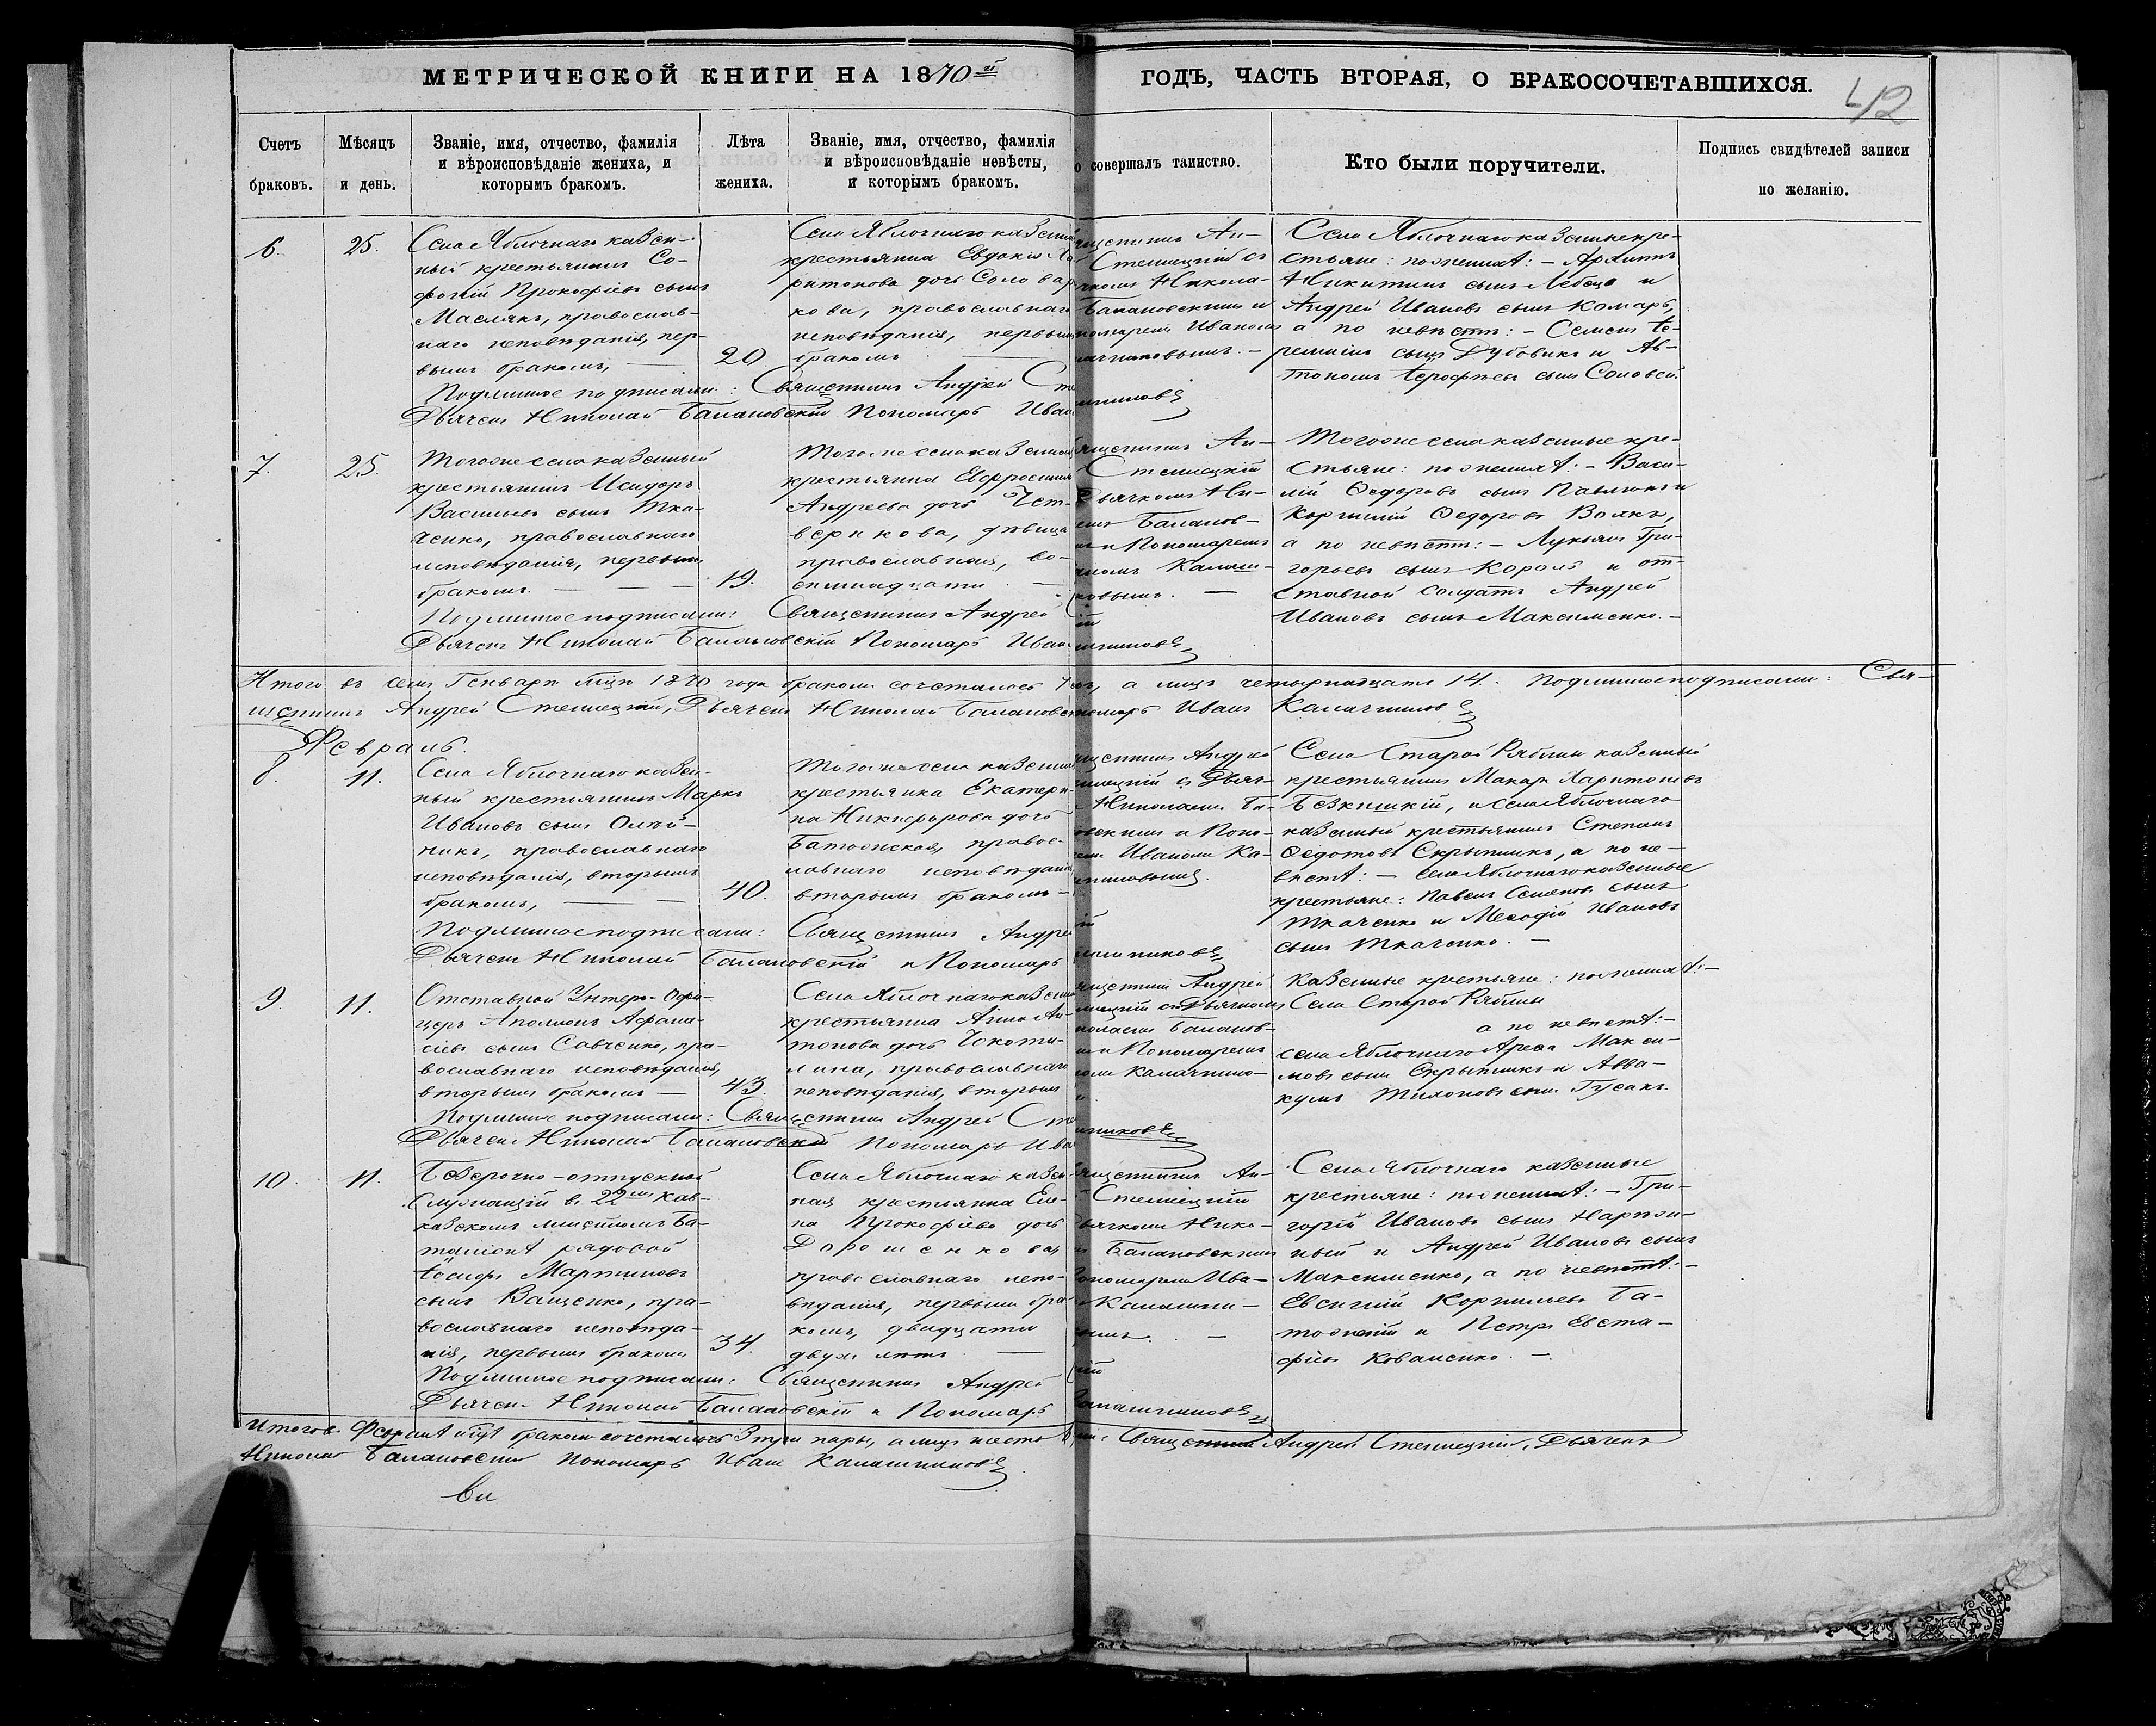 МЕТРИЧЕСКОЙ КНИГИ НА 1870й
ГОДЪ, ЧАСТЬ ВТОРАЯ, О БРАКОСОЧЕТАВШИХСЯ.
42
Счетъ
браковъ.
Мѣсяцъ
и день.
Званіе, имя, отчество, фамилія
и вѣроисповѣданіе жениха, и
которымъ бракомъ.
Лѣта
жениха.
Званіе, имя, отчество, фамилія
и вѣроисповѣданіе невѣсты,
и которымъ бракомъ.
о совершалъ таинство.
Кто были поручители.
Подпись свидѣтелей записи
по желанію.
6.
25.
Села Яблочнаго казен-
ный крестьянинъ Со-
фоній Прокофіевъ сынъ
Маслякъ, православ-
наго исповѣданія, пер-
вымъ бракомъ,
20.
Села Яблочнаго казенная
крестьянка Евдокія Ха
ритонова дочь Соловар
кова, православнаго
исповѣданія, первымъ
бракомъ
щенникъ Ан-
Стеллецкій съ
чкомъ Никола-
Балановскимъ и
номаремъ Иваномъ
лашниковымъ. —
Села Яблочнаго казенные кре-
стьяне: по женихѣ: — Архипъ
Никитинъ сынъ Лебедь и
Андрей Ивановъ сынъ Комарь,
а по невѣстѣ: — Семенъ Іе-
реміинъ сынъ Дубовикъ и Ав-
тономъ Іерофѣевъ сынъ Соловей.
Подлинное подписали: Священникъ Андрей Сте
Дьячекъ Николай Балановскій Пономарь Иван
шниковъ
7.
25.
Тогоже села казенный
крестьянинъ Исидоръ
Васильевъ сынъ Тка-
ченко, православнаго
исповѣданія, первымъ
бракомъ. —
19.
Тогоже села казенная
крестьянка Евфросинія
Андреева дочь Чет-
верикова, дѣвица
православная, во-
семнадцати —
щенникъ Ан-
Стеллецкій
Дьячкомъ Ни-
емъ Баланов-
мъ и Пономаремъ
аномъ Калаш-
ковымъ. —
Тогоже села казенные кре-
стьяне: по женихѣ: — Васи-
лій Ѳедоровъ сынъ Павлюкъ и
Корнилій Ѳедоровъ Волкъ,
а по невѣстѣ: — Лукьянъ Гри-
горьевъ сынъ Король и от-
ставной солдатъ Андрей
Ивановъ сынъ Максименко. —
Подлинное подписали: Священникъ Андрей С
ій
Дьячекъ Николай Балановскій Пономарь Иван
шниковъ
Итого въ семъ Генварѣ мцѣ 1870 года бракомъ сочеталось 7
ръ, а лицъ четырнадцать 14. Подлинное подписали: Свя-
щенникъ Андрей Стеллецкій, Дьячекъ Николай Балановск
номарь Иванъ Калашниковъ
Февраль.
8.
11.
Села Яблочнаго казен-
ный крестьянинъ Маркъ
Ивановъ сынъ Олѣй-
никъ, православнаго
исповѣданія, вторымъ
бракомъ, —
40.
Тогоже села казенная
крестьянка Екатери-
на Никифорова дочь
Батожская, правос-
лавнаго исповѣданія
вторымъ бракомъ —
щенникъ Андрей
ллецкій съ Дьяч-
Николаемъ Ба-
овскимъ и Поно-
емъ Иваномъ Ка-
шниковымъ.
Села Старой Рябины казенный
крестьянинъ Макаръ Харитоновъ
Безкишкій, и села Яблочнаго
казенный крестьянинъ Степанъ
Ѳедотовъ Скрыпникъ, а по не-
вѣстѣ: — Села Яблочнаго казенные
крестьяне: Павелъ Семеновъ сынъ
Ткаченко и Меѳодій Ивановъ
сынъ Ткаченко. —
Подлинное подписали: Священникъ Андрей
ій
Дьячекъ Николай Балановскій и Пономарь
лашниковъ
9.
11.
Отставной Унтеръ-Офи-
церъ Аполлонъ Афана-
сіевъ сынъ Савченко, пра-
вославнаго исповѣданія,
вторымъ бракомъ —
43.
Села Яблочнаго казенная
крестьянка Анна Ан-
тонова дочь Чокоти-
лина, православнаго
исповѣданія, вторымъ
щенникъ Андрей
ллецкій съ Дьячкомъ
колаемъ Баланов-
мъ и Пономаремъ
номъ Калашнико-
Казенные крестьяне: по женихѣ: —
Села Старой Рябины
а по невѣстѣ: —
села Яблочнаго Арефа Макси-
мовъ сынъ Скрыпникъ и Авва-
кумъ Тихоновъ сынъ Гусакъ.
Подлинное подписали: Священникъ Андрей Сте
Дьячекъ Николай Балановскій Пономарь Ива
шниковъ
10.
11.
Безсрочно-отпускный
Служащій въ 22мъ Кав-
казскомъ линейномъ Ба-
таліонѣ рядовой
Іосифъ Мартиновъ
сынъ Ващенко, пра-
вославнаго исповѣда-
нія, первымъ бракомъ
34.
Села Яблочнаго казен-
ная крестьянка Еле-
на Прокофіева дочь
Дорошенкова,
православнаго испо-
вѣданія, первымъ бра-
комъ, двадцати
двухъ лѣтъ. —
щенникъ Ан-
Стеллецкій
ьячкомъ Нико-
Балановскимъ
Пономаремъ Ива-
Калашни-
ымъ. —
Села Яблочнаго казенные
крестьяне: по женихѣ: — Гри-
горій Ивановъ сынъ Нарож-
ный и Андрей Ивановъ сынъ
Максименко, а по невѣстѣ: —
Евсигній Корнильевъ Ба-
тожскій и Петръ Евста-
фіевъ Коваленко. —
Подлинное подписали: Священникъ Андрей
кій
Дьячекъ Николай Балановскій и Пономарь
Калашниковъ
Итого въ Февралѣ мцѣ бракомъ сочеталось 3 три пары, а лицъ шесть 6,
Священникъ Андрей Стеллецкій, Дьячекъ
Николай Балановскій Пономарь Иванъ Калашниковъ